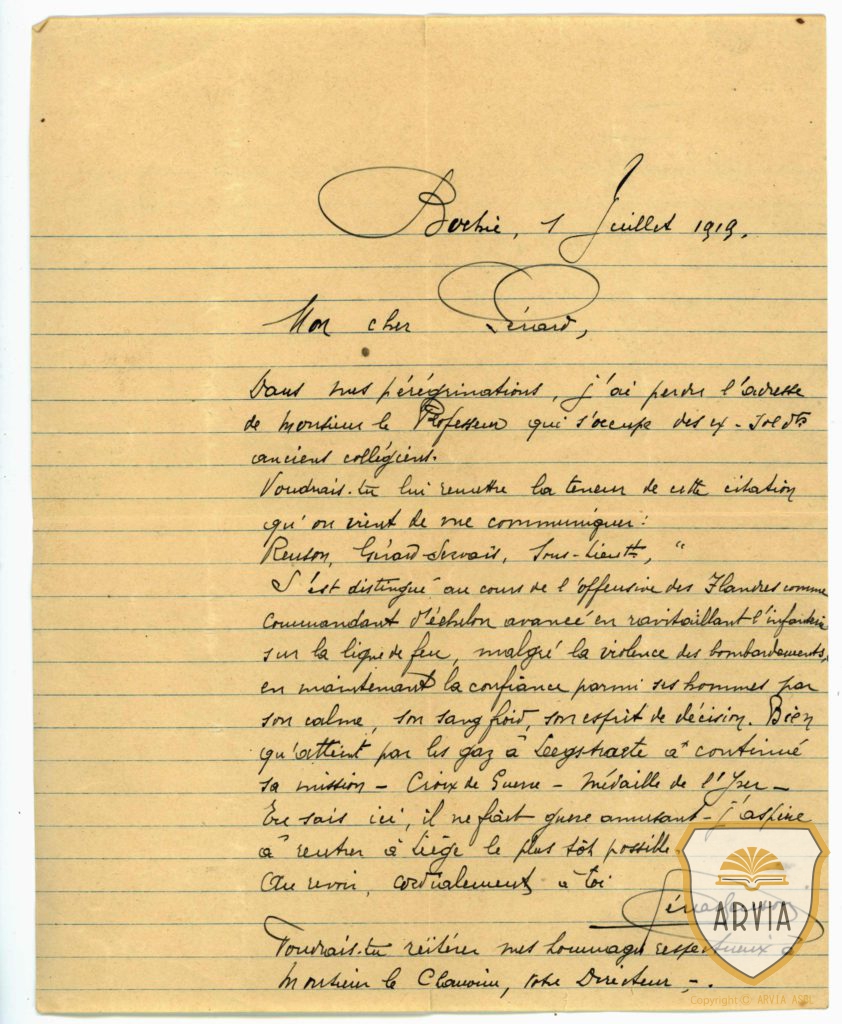 1 Juillet 1919.
Mon cher
Dans mes pérégrinations, j'ai perdu l'adresse
de Monsieur le Professeur qui s'occupe des ex-
anciens collégiens.
Voudrais-tu lui remettre la teneur de cette citation
qu'on vient de me communiquer:
Renson, Gérard-Servais, Sous-Lieutt, "
S'est distingué au cours de l'offensive des Flandres comme
commandant d'échelon avancé en ravitaillant l'infanterie
sur la ligne de feu, malgré la violence des bombardements,
en maintenant la confiance parmi ses hommes par
son calme, son sang froid, son esprit de décision. Bien
qu'atteint par les gaz à a continué
sa mission - Croix de Guerre - Médaille de l'Yser -
Tu sais ici, il ne fait guère amusant - J'aspire
à rentrer à Liège le plus tôt possible -
Au revoir, cordialement à toi
Voudrais-tu réitérer mes hommages respectueux à
Monsieur le Chanoine, votre Directeur -.
ARVIA
Copyright © ARVIA ASBL